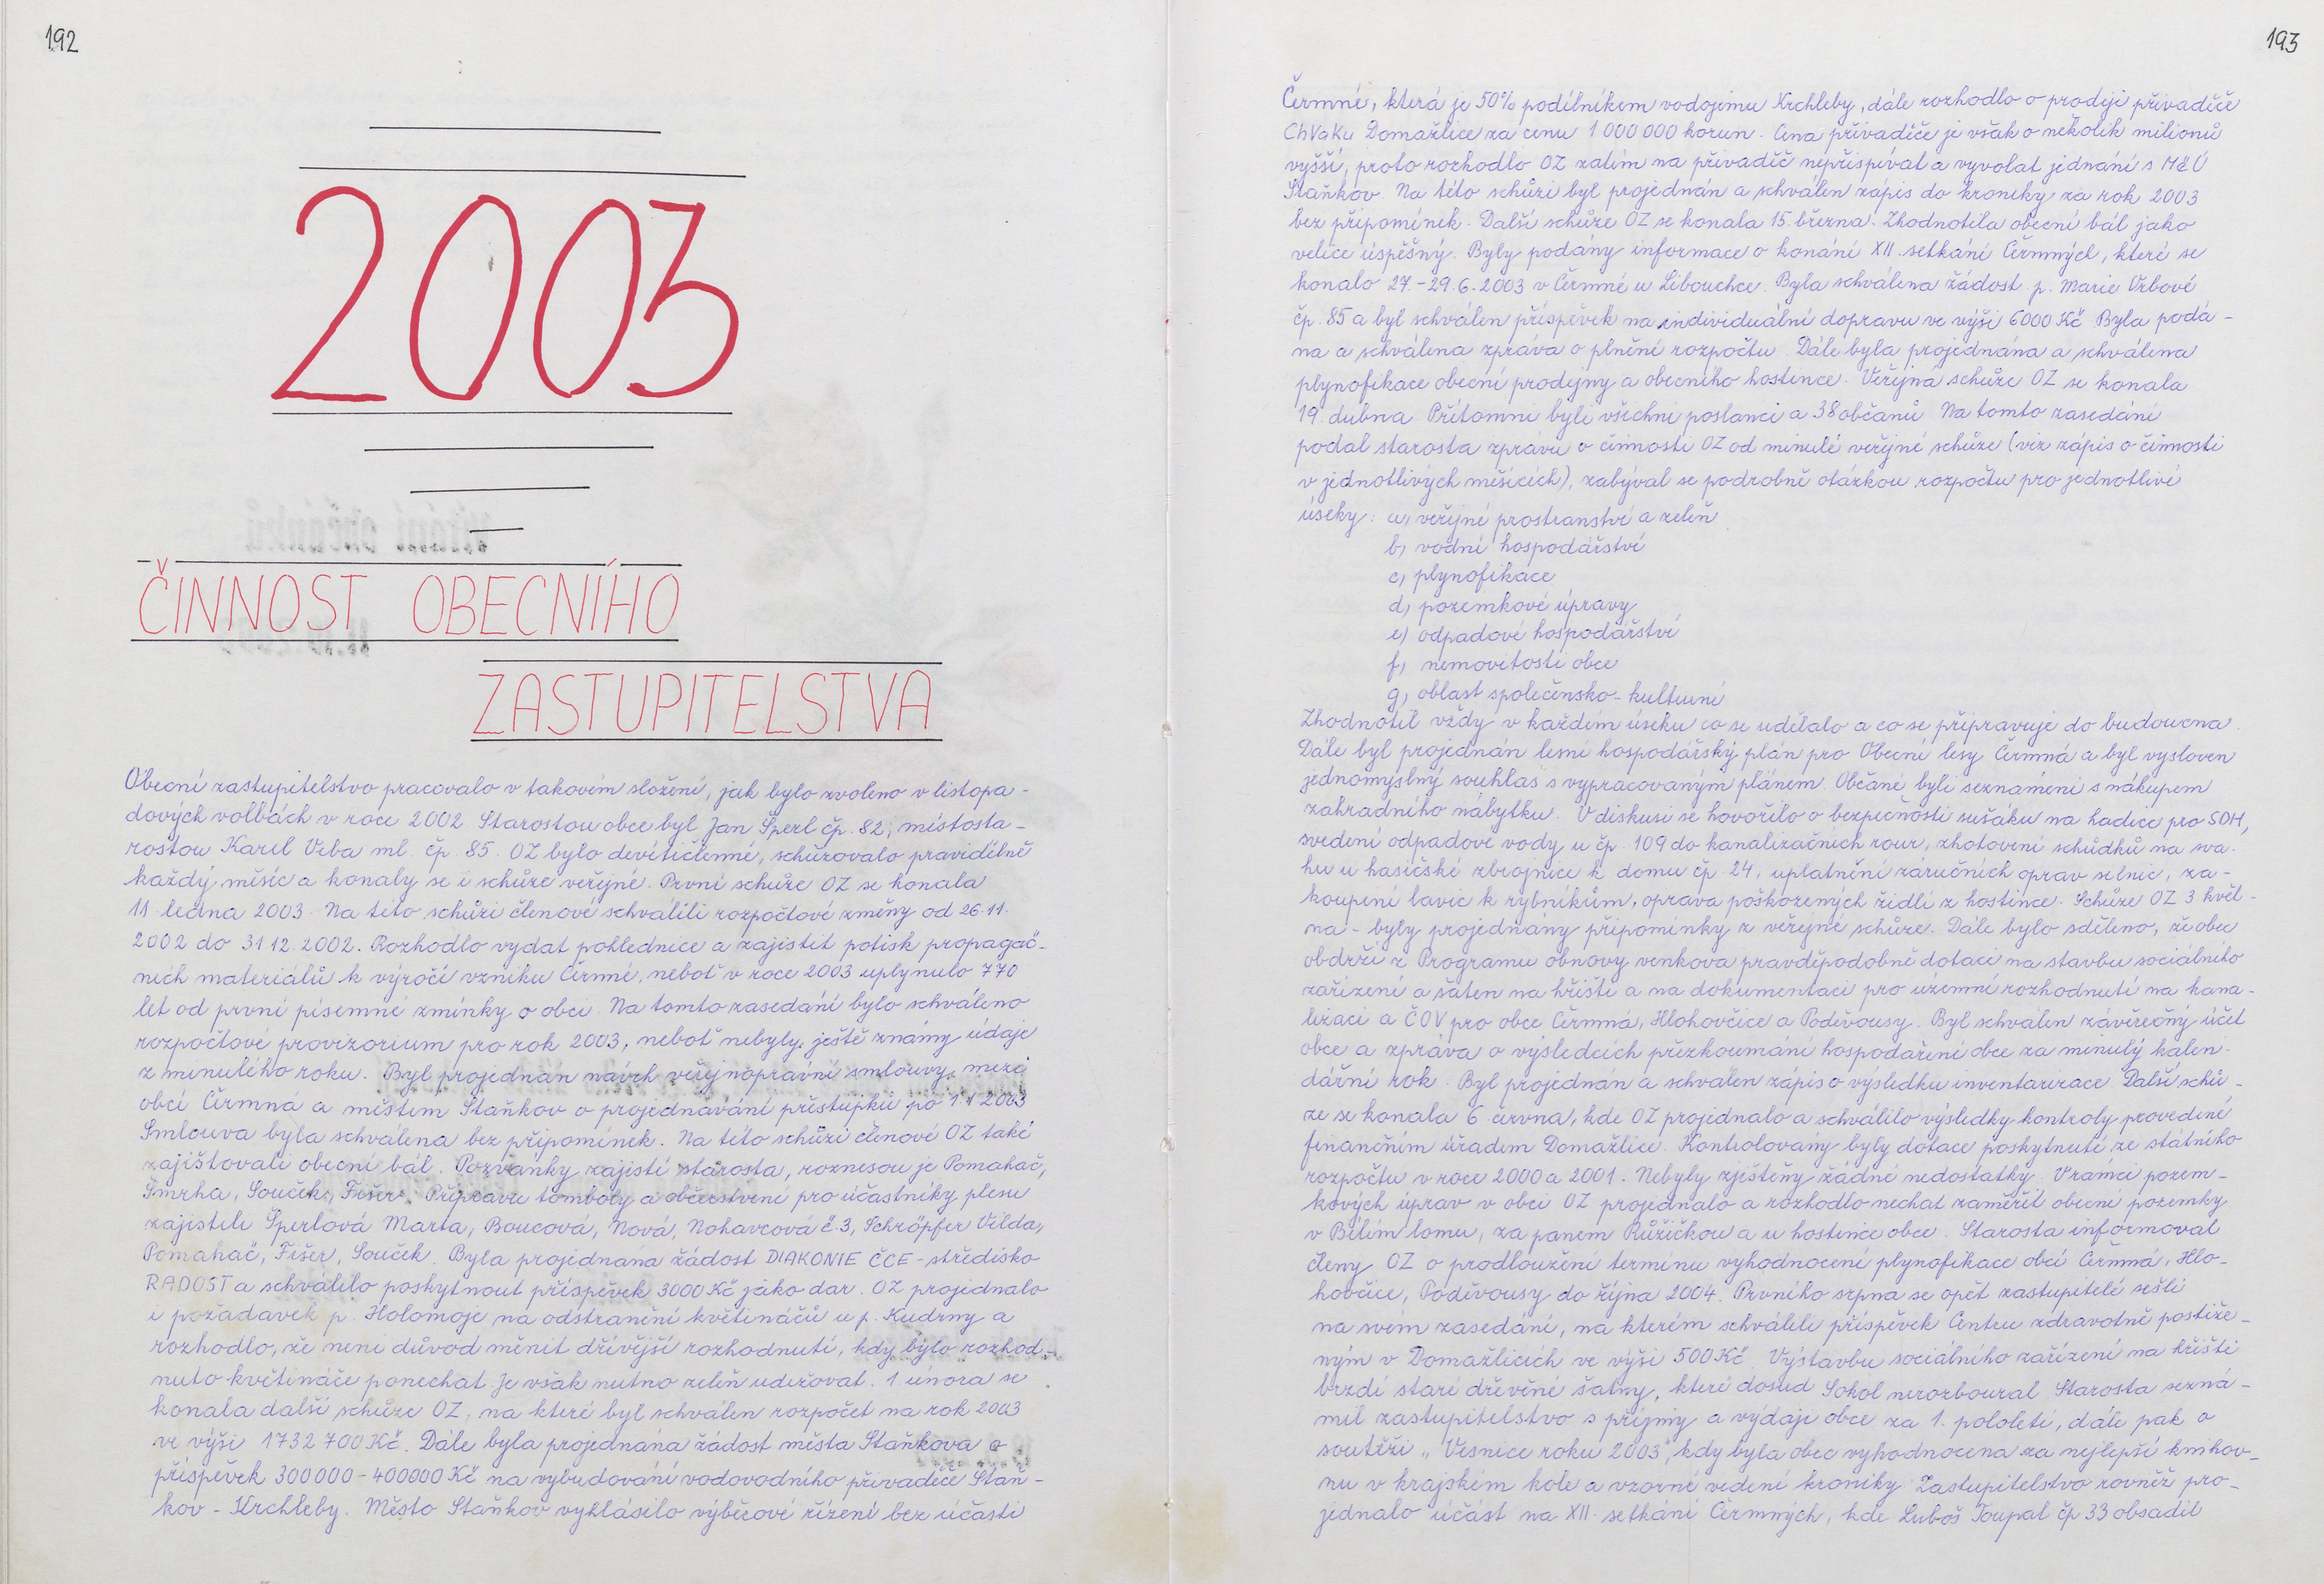 192
2003
ČINNOST OBECNÍHO
ZASTUPITELSTVA
Obecní zastupitelstvo pracovalo v takovém složení, jak bylo zvoleno v listopa-
dových volbách v roce 2002. Starostou obce byl Jan Šperl čp. 82, místosta-
rostou Karel Vrba ml. čp. 85. OZ bylo devítičlenné, schůzovalo pravidelně
každý měsíc a konaly se i schůze veřejné. První schůze OZ se konala
11. ledna 2003. Na této schůzi členové schválili rozpočtové změny od 26.11.
2002 do 31.12.2002. Rozhodlo vydat pohlednice a zajistit potisk propagač-
ních materiálů k výročí vzniku Čermné, neboť v roce 2003 uplynulo 770
let od první písemné zmínky o obci. Na tomto zasedání bylo schváleno
rozpočtové provizorium pro rok 2003, neboť nebyly ještě známy údaje
z minulého roku. Byl projednán návrh veřejnoprávní smlouvy mezi
obcí Čermná a městem Staňkov o projednávání přestupků po 1.1.2003
Smlouva byla schválena bez připomínek. Na této schůzi členové OZ také
zajišťovali obecní bál. Pozvánky zajistí starosta, roznesou je Pomahač,
Šmrha, Souček, Fišer. Přípravu tomboly a občerstvení pro účastníky plesu
zajistili Šperlová Marta, Boucová, Nová, Nohavcová č.3, Schröpfer Vilda,
Pomahač, Fišer, Souček. Byla projednána žádost DIAKONIE ČCE - středisko
RADOST a schválilo poskytnout příspěvek 3000 Kč jako dar. OZ projednalo
i požadavek p. Holomoje na odstranění květináčů u p. Kudrny a
rozhodlo, že není důvod měnit dřívější rozhodnutí, kdy bylo rozhod-
nuto květináče ponechat. Je však nutno zeleň udržovat. 1. února se
konala další schůze OZ, na které byl schválen rozpočet na rok 2003
ve výši 1732 700 Kč. Dále byla projednána žádost města Staňkova o
příspěvek 300000 - 400000 Kč na vybudování vodovodního přivaděče Staň-
kov - Krchleby. Město Staňkov vyhlásilo výběrové řízení bez účasti
193
Čermné, která je 50% podílníkem vodojemu Krchleby, dále rozhodlo o prodeji přivaděče
ChVaKu Domažlice za cenu 1 000 000 korun. Cena přivaděče je však o několik milionů
vyšší, proto rozhodlo OZ zatím na přivaděč nepřispívat a vyvolat jednání s MěÚ
Staňkov. Na této schůzi byl projednán a schválen zápis do kroniky za rok 2003
bez připomínek. Další schůze OZ se konala 15. března. Zhodnotila obecní bál jako
velice úspěšný. Byly podány informace o konání XII. setkání Čermných, které se
konalo 27.-29.6.2003 v Čermné u Libouchce. Byla schválena žádost p. Marie Vrbové
čp. 85 a byl schválen příspěvek na individuální dopravu ve výši 6000 Kč. Byla podá-
na a schválena zpráva o plnění rozpočtu. Dále byla projednána a schválena
plynofikace obecní prodejny a obecního hostince. Veřejná schůze OZ se konala
19. dubna. Přítomni byli všichni poslanci a 38 občanů. Na tomto zasedání
podal starosta zprávu o činnosti OZ od minulé veřejné schůze (viz zápis o činnosti
v jednotlivých měsících), zabýval se podrobně otázkou rozpočtu pro jednotlivé
úseky: a) veřejné prostranství a zeleň
b) vodní hospodářství
c) plynofikace
d) pozemkové úpravy
e) odpadové hospodářství
f) nemovitosti obce
g) oblast společensko - kulturní
Zhodnotil vždy v každém úseku co se udělalo a co se připravuje do budoucna.
Dále byl projednán lesní hospodářský plán pro Obecní lesy Čermná a byl vysloven
jednomyslný souhlas s vypracovaným plánem. Občané byli seznámeni s nákupem
zahradního nábytku. V diskusi se hovořilo o bezpečnosti sušáku na hadice pro SDH,
svedení odpadové vody u čp. 109 do kanalizačních rour, zhotovení schůdků na sva-
hu u hasičské zbrojnice k domu čp. 24, uplatnění záručních oprav silnic, za-
koupení lavic k rybníkům, oprava poškozených židlí z hostince. Schůze OZ 3 květ-
na - byly projednány připomínky z veřejné schůze. Dále bylo sděleno, že obec
obdrží z Programu obnovy venkova pravděpodobně dotaci na stavbu sociálního
zařízení a šaten na hřišti a na dokumentaci pro územní rozhodnutí na kana-
lizaci a ČOV pro obce Čermná, Hlohovčice a Poděvousy. Byl schválen závěrečný účet
obce a zpráva o výsledcích přezkoumání hospodaření obce za minulý kalen-
dářní rok. Byl projednán a schválen zápis o výsledku inventarizace. Další schů-
ze se konala 6. června, kde OZ projednalo a schválilo výsledky kontroly provedené
finančním úřadem Domažlice. Kontrolovány byly dotace poskytnuté ze státního
rozpočtu v roce 2000 a 2001. Nebyly zjištěny žádné nedostatky. V rámci pozem-
kových úprav v obci OZ projednalo a rozhodlo nechat zaměřit obecní pozemky
v Bílém lomu, za panem Růžičkou a u hostince obce. Starosta informoval
členy OZ o prodloužení termínu vyhodnocení plynofikace obcí Čermná, Hlo-
hovčice, Poděvousy do října 2004. Prvního srpna se opět zastupitelé sešli
na svém zasedání, na kterém schválili příspěvek Centru zdravotně postiže-
ným v Domažlicích ve výši 500 Kč. Výstavbu sociálního zařízení na hřišti
brzdí staré dřevěné šatny, které dosud Sokol nerozboural. Starosta sezná-
mil zastupitelstvo s příjmy a výdaji obce za 1. pololetí, dále pak o
soutěži „Vesnice roku 2003", kdy byla obec vyhodnocena za nejlepší knihov-
nu v krajském kole a vzorné vedení kroniky. Zastupitelstvo rovněž pro-
jednalo účast na XII. setkání Čermných, kde Luboš Toupal čp 33 obsadil